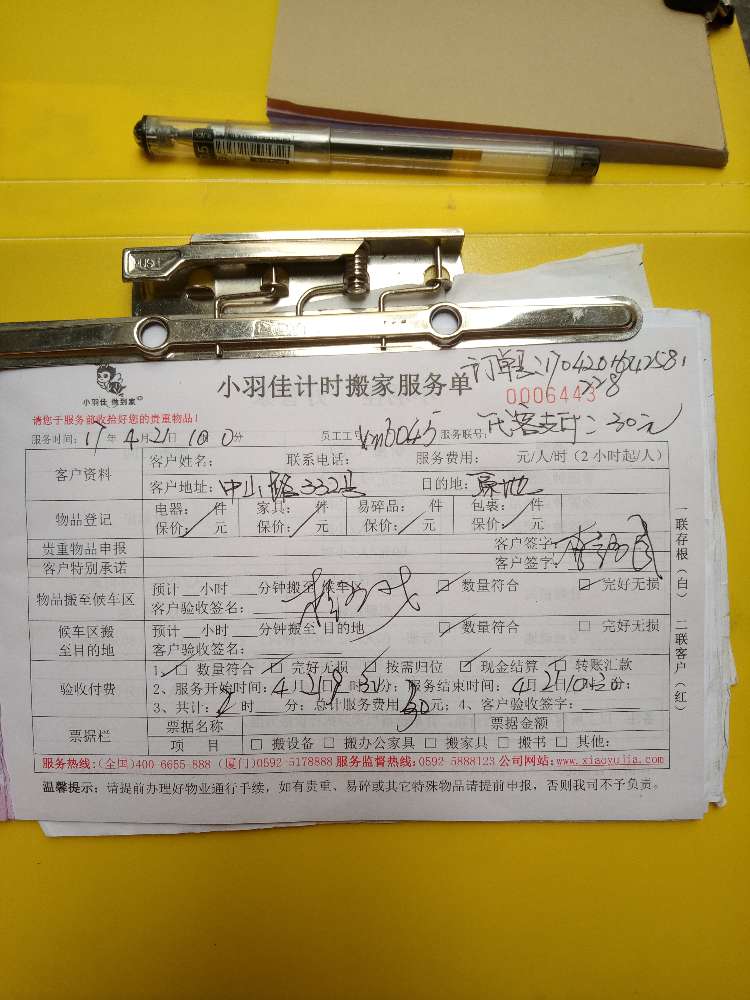 PUSH
小羽佳 做到家
小羽佳计时搬家服务单
0006443
328
请您于服务前收拾好您的贵重物品!
服务时间: 17年4月21日 10时0分 员工工号 服务联号: 代客支付:30元
客户资料
客户姓名: 联系电话: 服务费用: 元/人/时(2小时起/人)
客户地址: 中山路332号 目的地: 原地
物品登记
电器: 件 家具: 件 易碎品: 件 包裹: 件
保价: 元 保价: 元 保价: 元 保价: 元
贵重物品申报 客户签字:
客户特别承诺 客户签字:
物品搬至候车区
预计__小时___分钟搬至 候车区 □ 数量符合 □ 完好无损
客户验收签名:
候车区搬至目的地
预计__小时___分钟搬至 目的地 □ 数量符合 □ 完好无损
客户验收签名:
验收付费
1、□ 数量符合 □ 完好无损 □ 按需归位 □ 现金结算 □ 转账汇款
2、服务开始时间: 4月21日9时30分; 服务结束时间: 4月21日10时30分;
3、共计: 2时 分; 总计服务费用 30元; 4、客户验收签字:
票据栏
票据名称 票据金额
项 目 □ 搬设备 □ 搬办公家具 □ 搬家具 □ 搬书 □ 其他:
服务热线:(全国)400 6655 888 (厦门)0592 5178888 服务监督热线:0592 5888123 公司网站:www.xiaoyujia.com
温馨提示: 请提前办理好物业通行手续, 如有贵重、易碎或其它特殊物品请提前申报, 否则我司不予负责。
一联存根(白) 二联客户(红)